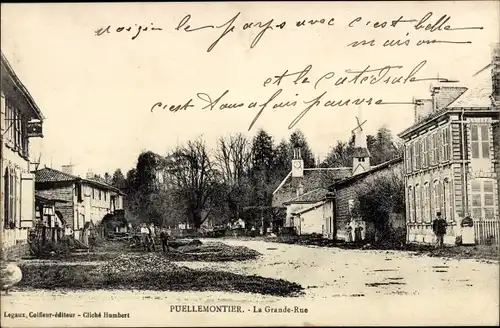 voisin le pays avec c'est belle
maison
et la Catédrale
c'est
pauvre
PUELLEMONTIER. - La Grande-Rue
Legaux, Coiffeur-éditeur - Cliché Humbert